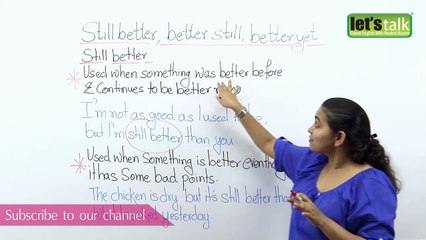 let's talk
Still better, better still, better yet
Still better
* Used when something was better before
& Continues to be better
I'm not as good as I used to be,
but I'm still better than you
* Used when Something is better even
it has Some bad points.
The chicken is dry, but it's still better than
yesterday.
Subscribe to our channel